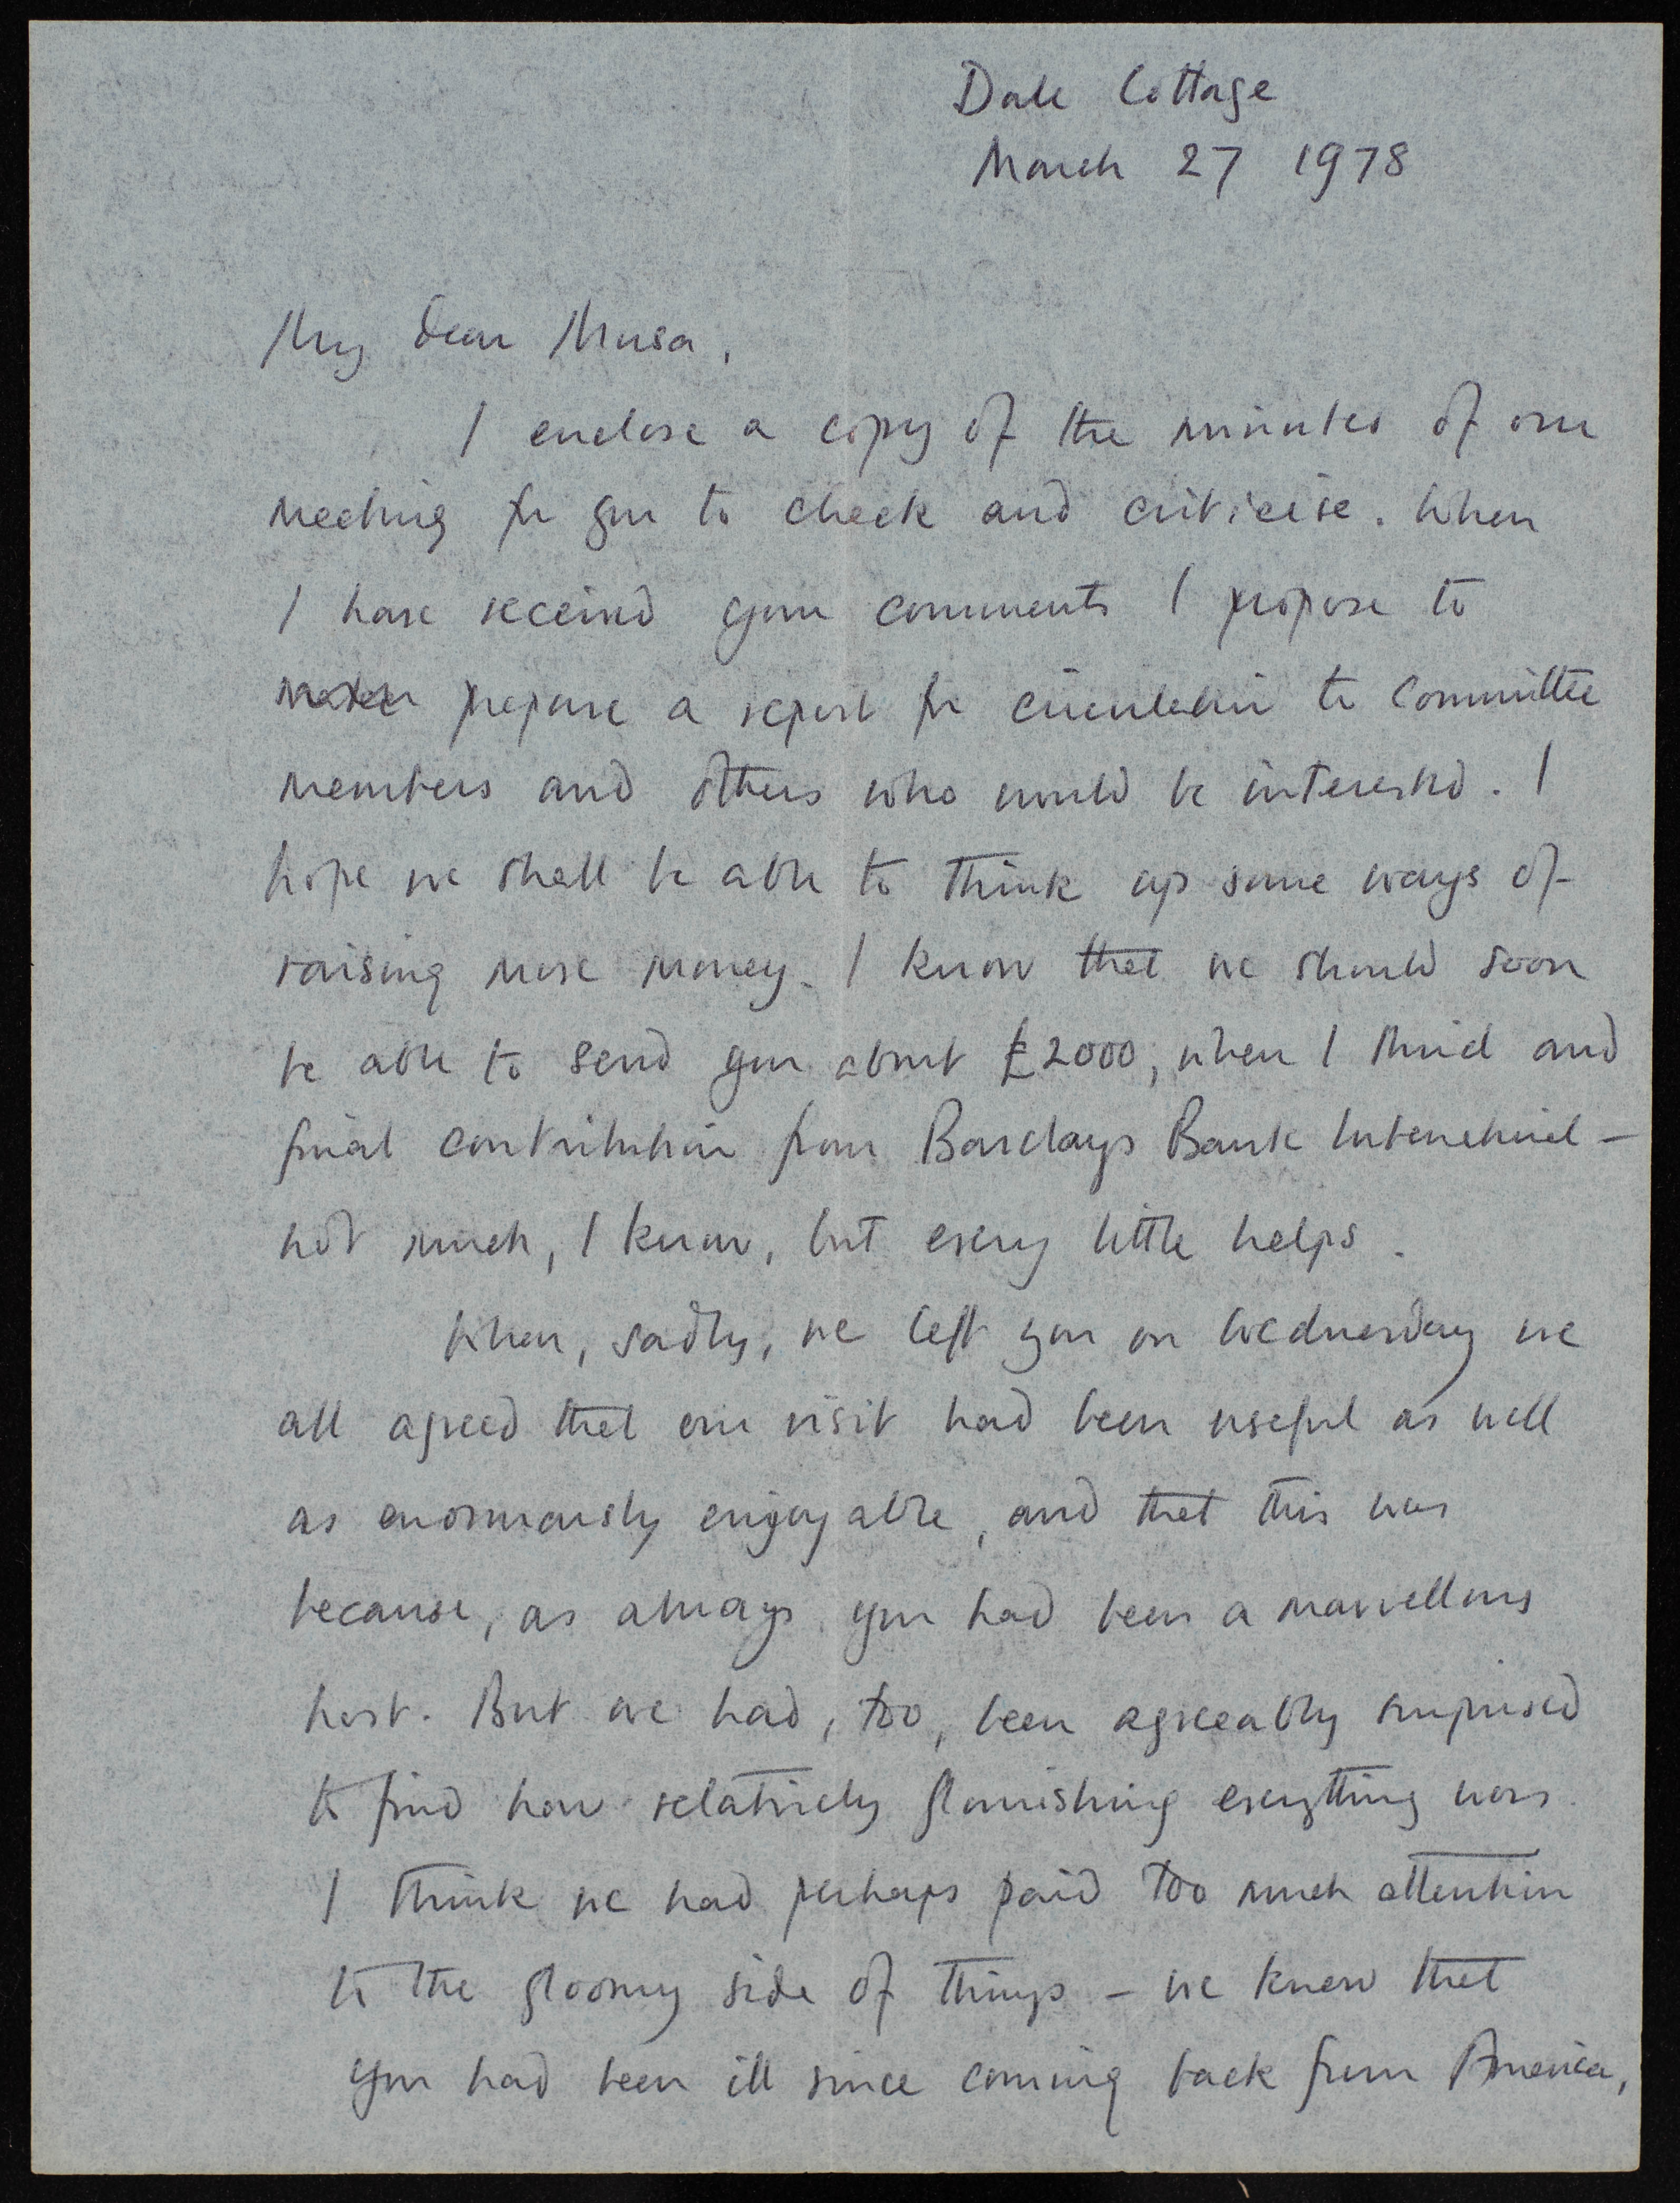 Dale Cottage
March 27 1978
My dear Musa,
I enclose a copy of the minutes of our
meeting for you to check and criticise. When
I have received your comments I propose to
prepare a report for circulation to Committee
members and others who would be interested. I
hope we shall be able to think up some ways of
raising more money. I know that we should soon
be able to send you about £2000, when I third and
final contribution from Barclays Bank International –
not much, I know, but every little helps.
When, sadly, we left you on Wednesday we
all agreed that our visit had been useful as well
as enormously enjoyable, and that this was
because, as always, you had been a marvellous
host. But we had, too, been agreeably surprised
to find how relatively flourishing everything was.
I think we had perhaps paid too much attention
to the gloomy side of things – we knew that
you had been ill since coming back from America,